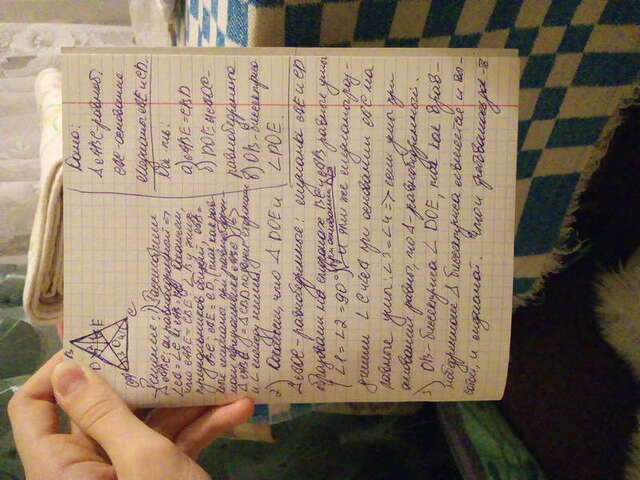 B
D E
O
A C
Дано:
△ABC-равноб.
AC-основание
Медианы AE и CD.
Док-ть:
а) ABE=CBD
б) DOE и AOC-
равнобедренного
в) OB-биссектриса
∠DOE.
Решение: 1) Рассмотрим
△ABC; он равнобедренный =>
∠A=∠C
что ABE=CBE: ∠B у этих
треугольников общий, AB=
BC; AE=CD, (так как рав-
ные медианы при равнобедрен-
ном треугольнике ABC) =>
△ABE=△CBD по двум сторонам
и ∠ между ними.
2) Докажем, что △DOE и
△AOC-равнобедренные: медианы AE и CD
образовали на сторонах BC и AB равные углы
(∠1=∠2=90°) при основании и эти же медианы раз-
делили ∠C и ∠A при основании AC на
равные углы: ∠3=∠4 => если углы при
основании равны, то △-равнобедренный.
3) OB-биссектриса ∠DOE, так как в рав-
нобедренном △ биссектриса является и вы-
сотой, и медианой. Что и требовалось док-ть